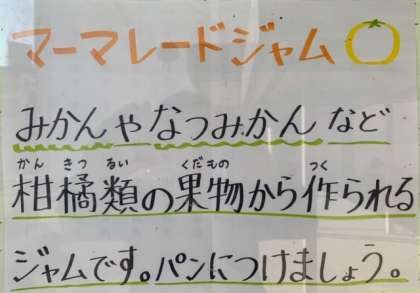 マーマレードジャム
みかんやなつみかんなど
かんきつるい くだもの つく
柑橘類の果物から作られる
ジャムです。パンにつけましょう。